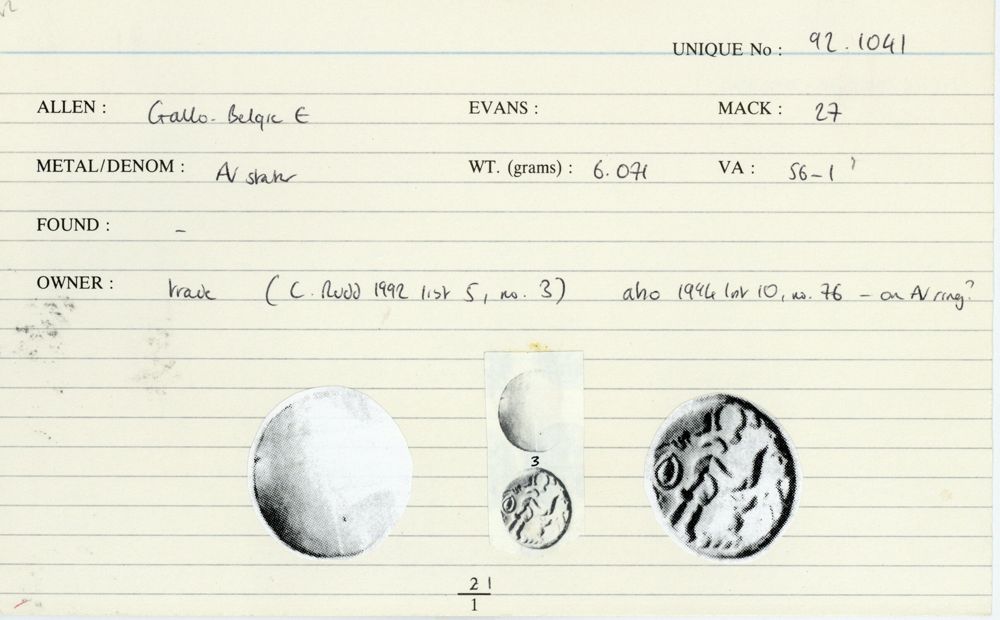 UNIQUE No : 92.1041
ALLEN : Gallo-Belgic E EVANS : MACK : 27
METAL/DENOM : AV stater WT. (grams) : 6.071 VA : 56-1 ?
FOUND : -
OWNER : trade (C. Rudd 1992 list 5, no. 3) also 1994 list 10, no. 76 - on AV ring?
3
21
1